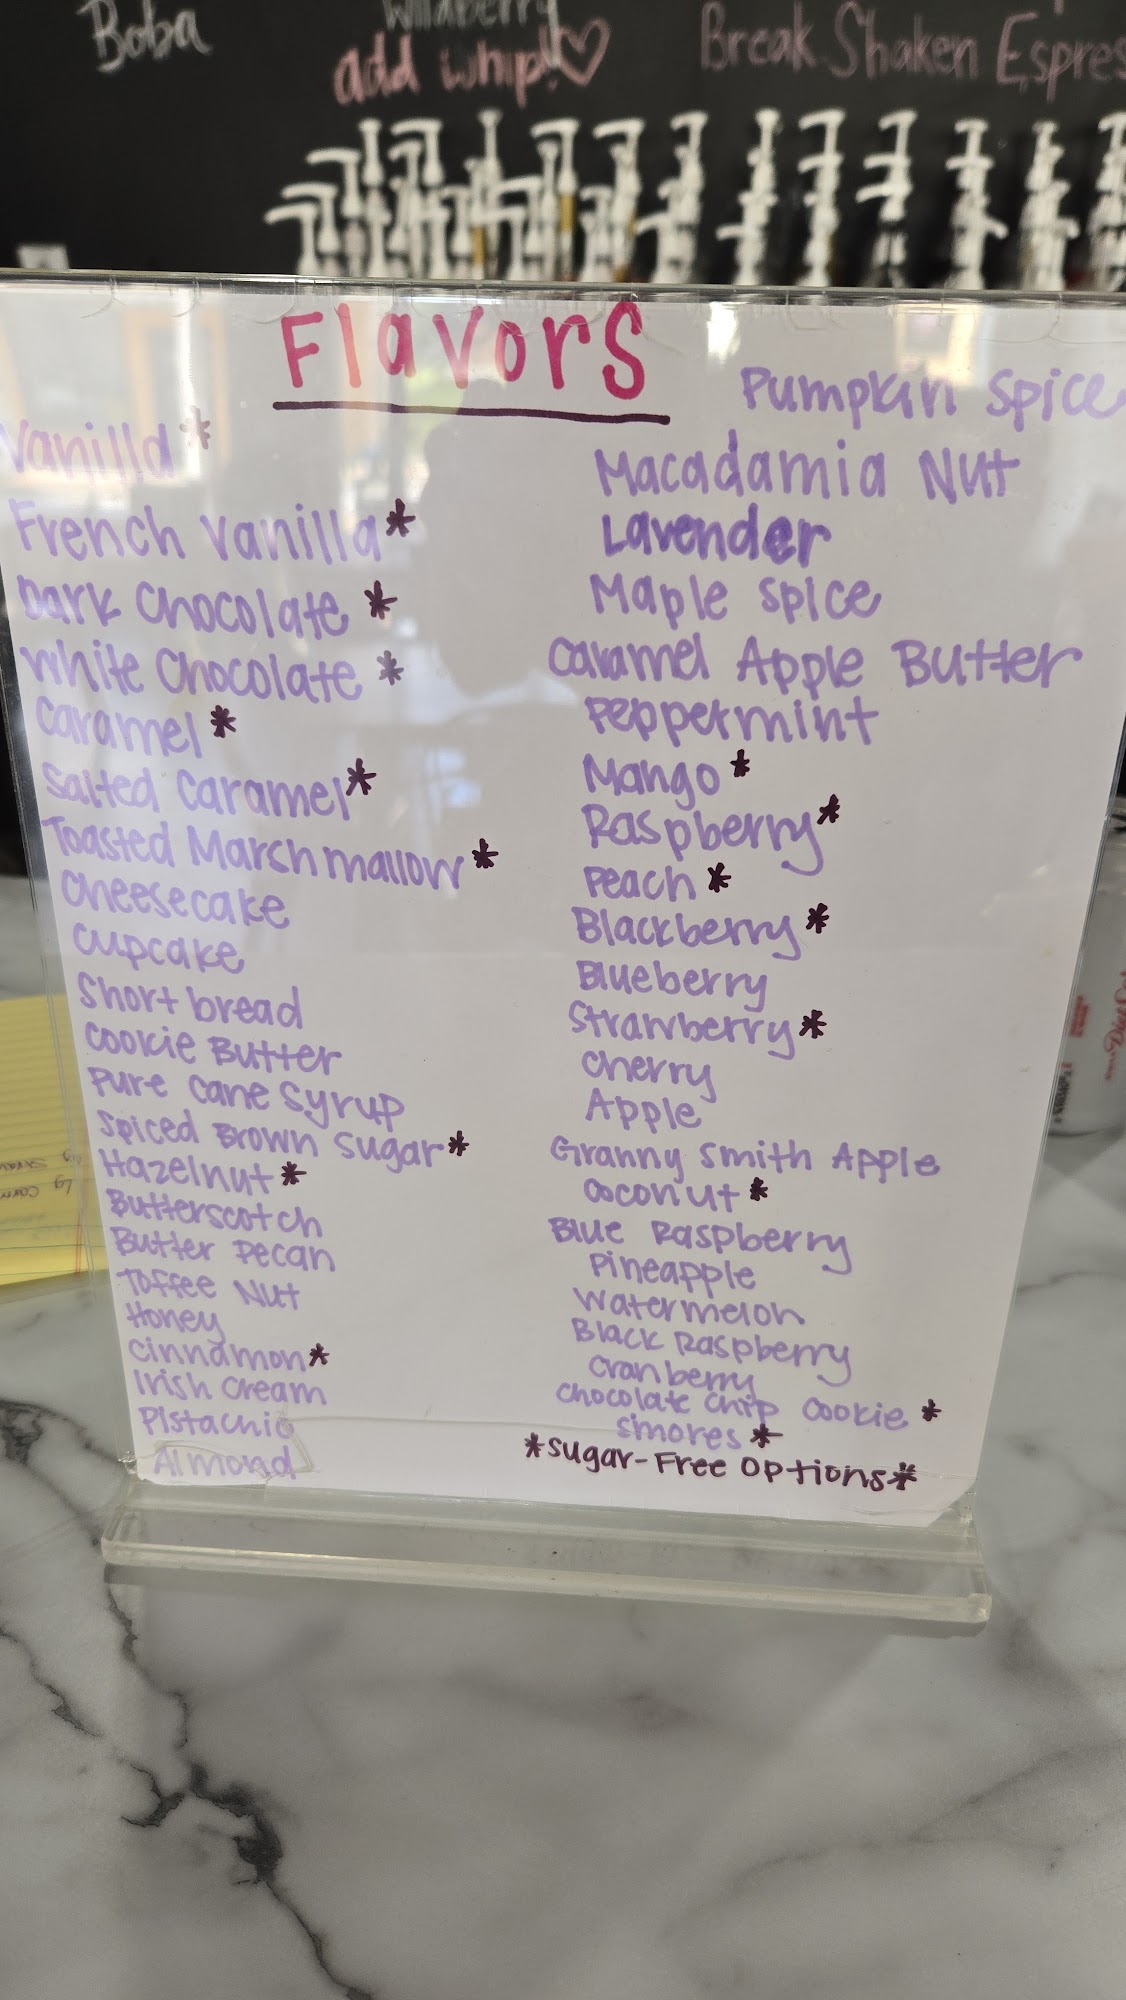 Boba
Wildberry
add whip!
Break Shaken Espres
Flavors
Vanilla*
French Vanilla*
Dark Chocolate*
White Chocolate*
Caramel*
Salted Caramel*
Toasted Marshmallow*
Cheesecake
Cupcake
Shortbread
Cookie Butter
Pure Cane Syrup
Spiced Brown Sugar*
Hazelnut*
Butterscotch
Butter Pecan
Toffee Nut
Honey
Cinnamon*
Irish Cream
Pistachio
Almond
Pumpkin Spice
Macadamia Nut
Lavender
Maple Spice
Caramel Apple Butter
Peppermint
Mango*
Raspberry*
Peach*
Blackberry*
Blueberry
Strawberry*
Cherry
Apple
Granny Smith Apple
Coconut*
Blue Raspberry
Pineapple
Watermelon
Black Raspberry
Cranberry
Chocolate Chip Cookie*
S'mores*
*Sugar-Free Options*